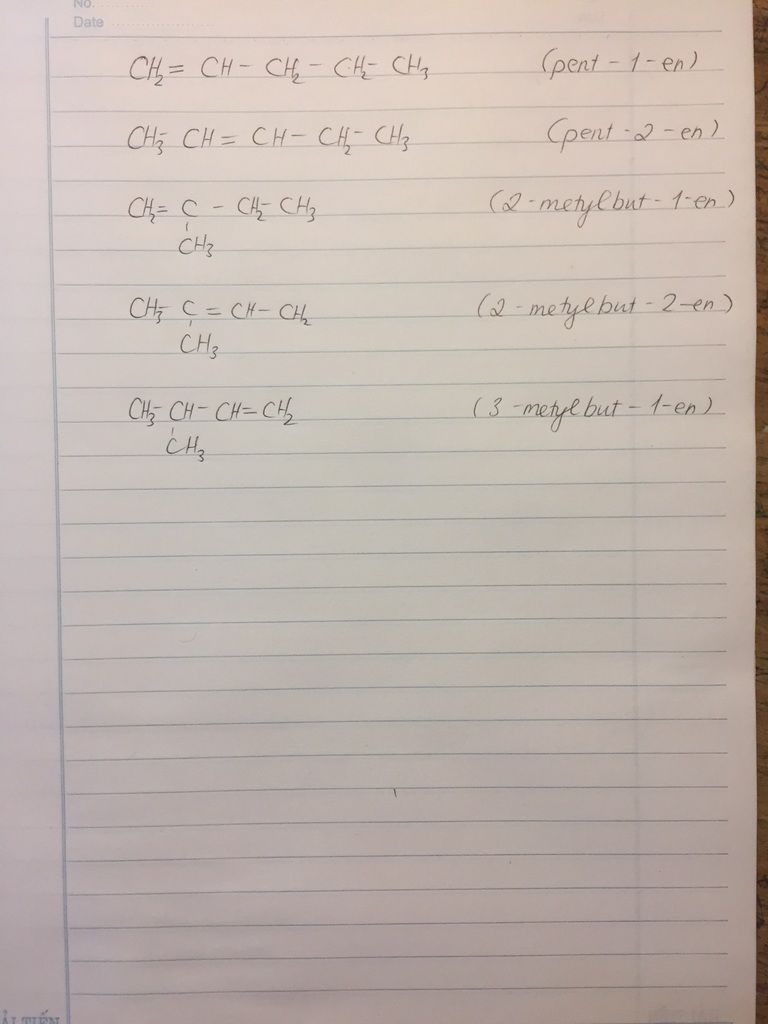 No.
Date
CH₂= CH- CH₂- CH₂- CH₃ (pent-1-en)
CH₃- CH = CH- CH₂- CH₃ (pent-2-en)
CH₂= C - CH₂- CH₃ (2-metylbut-1-en)
CH₃
CH₃- C = CH- CH₂ (2-metylbut-2-en)
CH₃
CH₃- CH- CH= CH₂ (3-metylbut-1-en)
CH₃
ẢI TIẾN